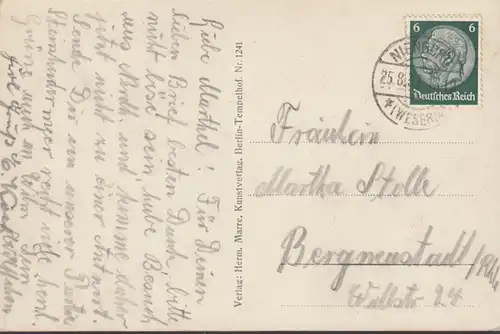 Liebe Marthel! Für Deinen
lieben Brief besten Dank, bitte
nicht böse sein habe Besuch
aus Nordh. und komme daher
jetzt nicht zu einer Antwort.
Sende Dir von unserer Partie
Steinhudermeer recht viele herzl.
Grüsse auch an Deine
Verlag: Herm. Marre, Kunstverlag, Berlin-Tempelhof. Nr. 1241
6 6
Deutsches Reich
25.8
(WESER)
Fräulein
Martha Stolle
Bergneustadt/Rhld
Wallstr 24